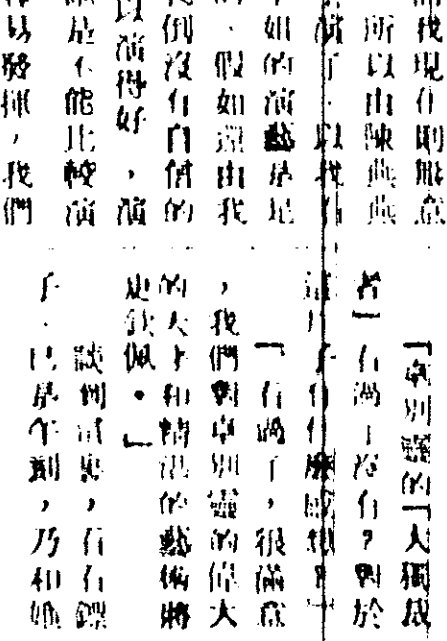 我現在則無意
所以由陳燕燕
演了．以我
如的演藝是
．假如還由我
倒沒有自信的
以演得好，演
是不能比較演
易發揮，我們
「卓別靈的「大獨裁
者」看過了沒有？對於
這片子有什麼感想？」
「看過了，很滿意
，我們對卓別靈的偉大
的天才和精湛的藝術將
更欽佩。」
談到這裏，看看鐘
子．已是午刻，乃和她